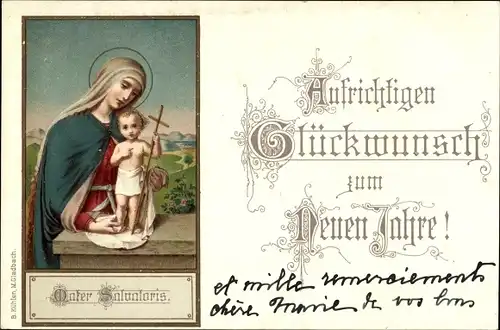 Aufrichtigen
Glückwunsch
zum
Neuen Jahre!
et mille remerciements
chère Marie de vos bons
Mater Salvatoris.
B. Kühlen, M. Gladbach.